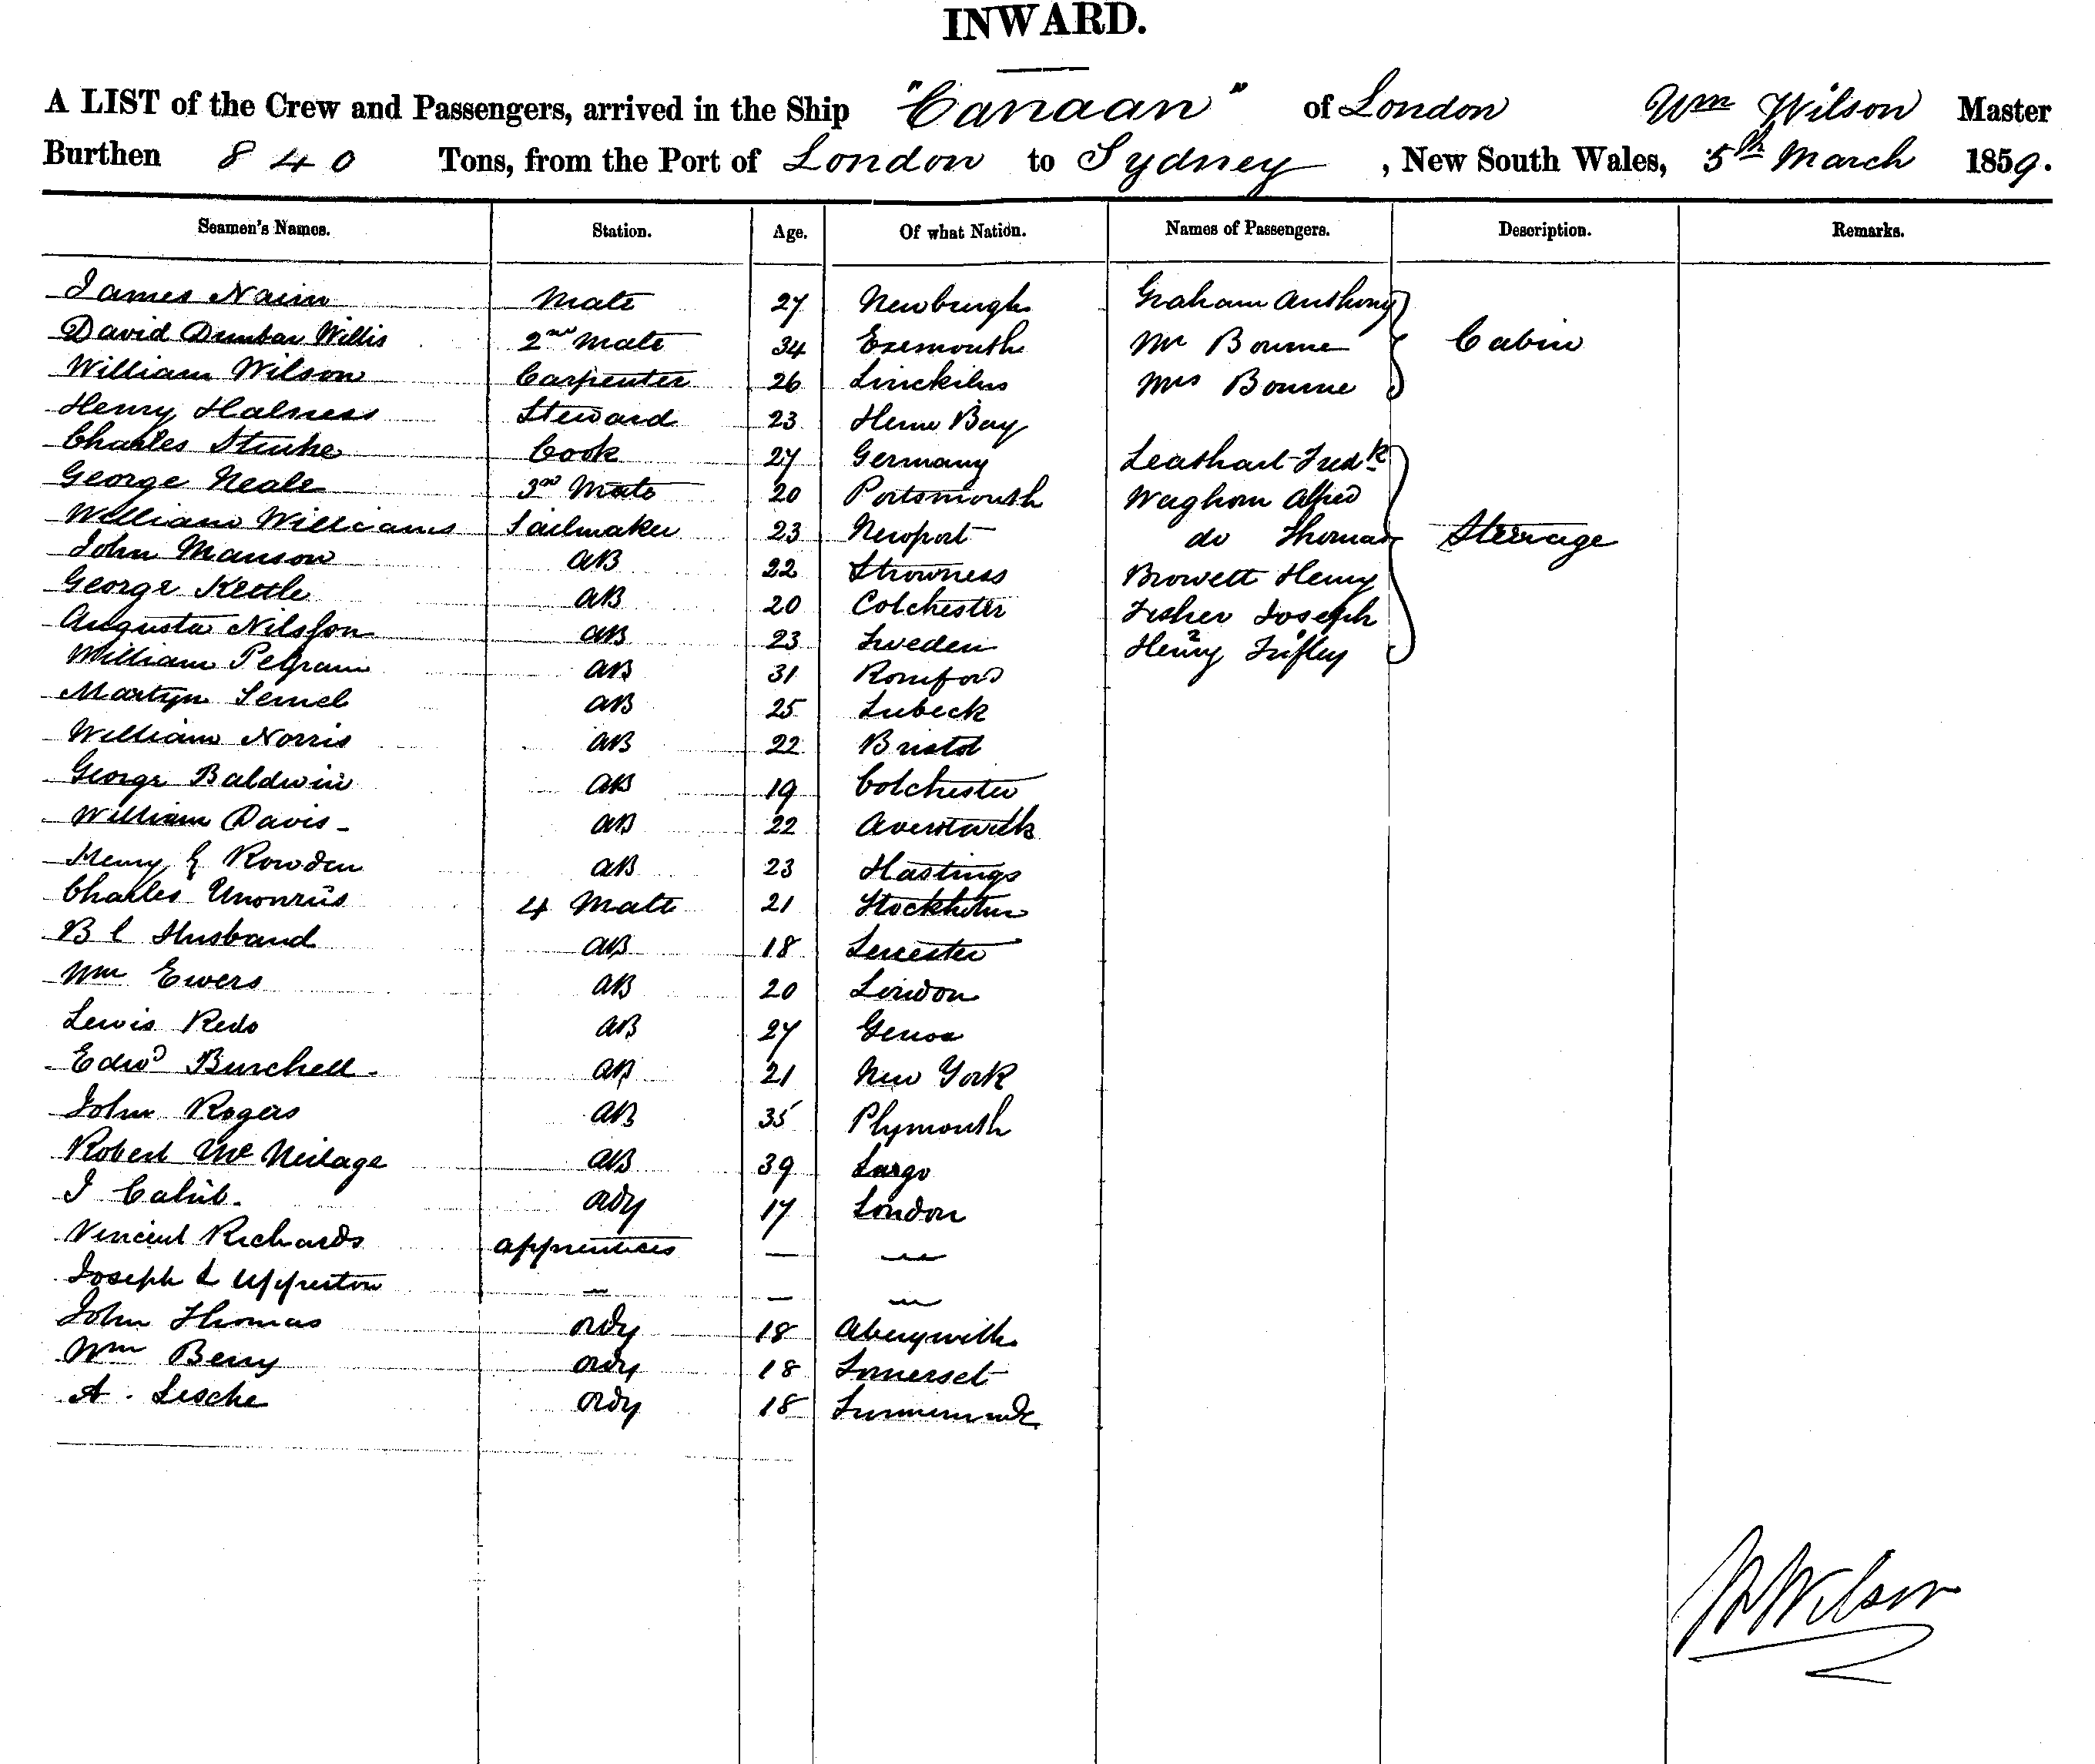 INWARD.
A LIST of the Crew and Passengers, arrived in the Ship "Canaan" of London Wm Wilson Master
Burthen 840 Tons, from the Port of London to Sydney, New South Wales, 5th March 1859.
Seamen's Names. Station. Age. Of what Nation. Names of Passengers. Description. Remarks.
James Nairn Mate 27 Newburgh Graham Anthony
David Dunbar Willis 2nd Mate 34 Exemouth Mr Bourne Cabin
William Wilson Carpenter 26 Linckilns Mrs Bourne
Henry Halness Steward 23 Herne Bay
Charles Cook 27 Germany Leathart Fredk
George Neale 3rd Mate 20 Portsmouth Waghorn Alfred
William Williams Sailmaker 23 Newport do Thomas Steerage
John Manson AB 22 Strowness Browett Henry
George Kettle AB 20 Colchester Fisher Joseph
Augusta Nilsson AB 23 Sweden Henry
William Pelgram AB 31 Romford
Martyn Semel AB 25 Lubeck
William Norris AB 22 Bristol
George Baldwin AB 19 Colchester
William Davis AB 22
Henry G Rowden AB 23 Hastings
Charles 4 Mate 21 Stockholm
B C Husband AB 18 Leicester
Wm Ewers AB 20 London
Lewis Redo AB 27 Genoa
Edwd Burchell AB 21 New York
John Rogers AB 35 Plymouth
Robert Mc Neilage AB 39 Largo
J Ordy 17 London
Vincent Richards apprentices — "
Joseph L Uppreston — — "
John Thomas Ordy 18 Aberywith
Wm Berry Ordy 18 Somerset
A. Lesche Ordy 18
Wm Wilson